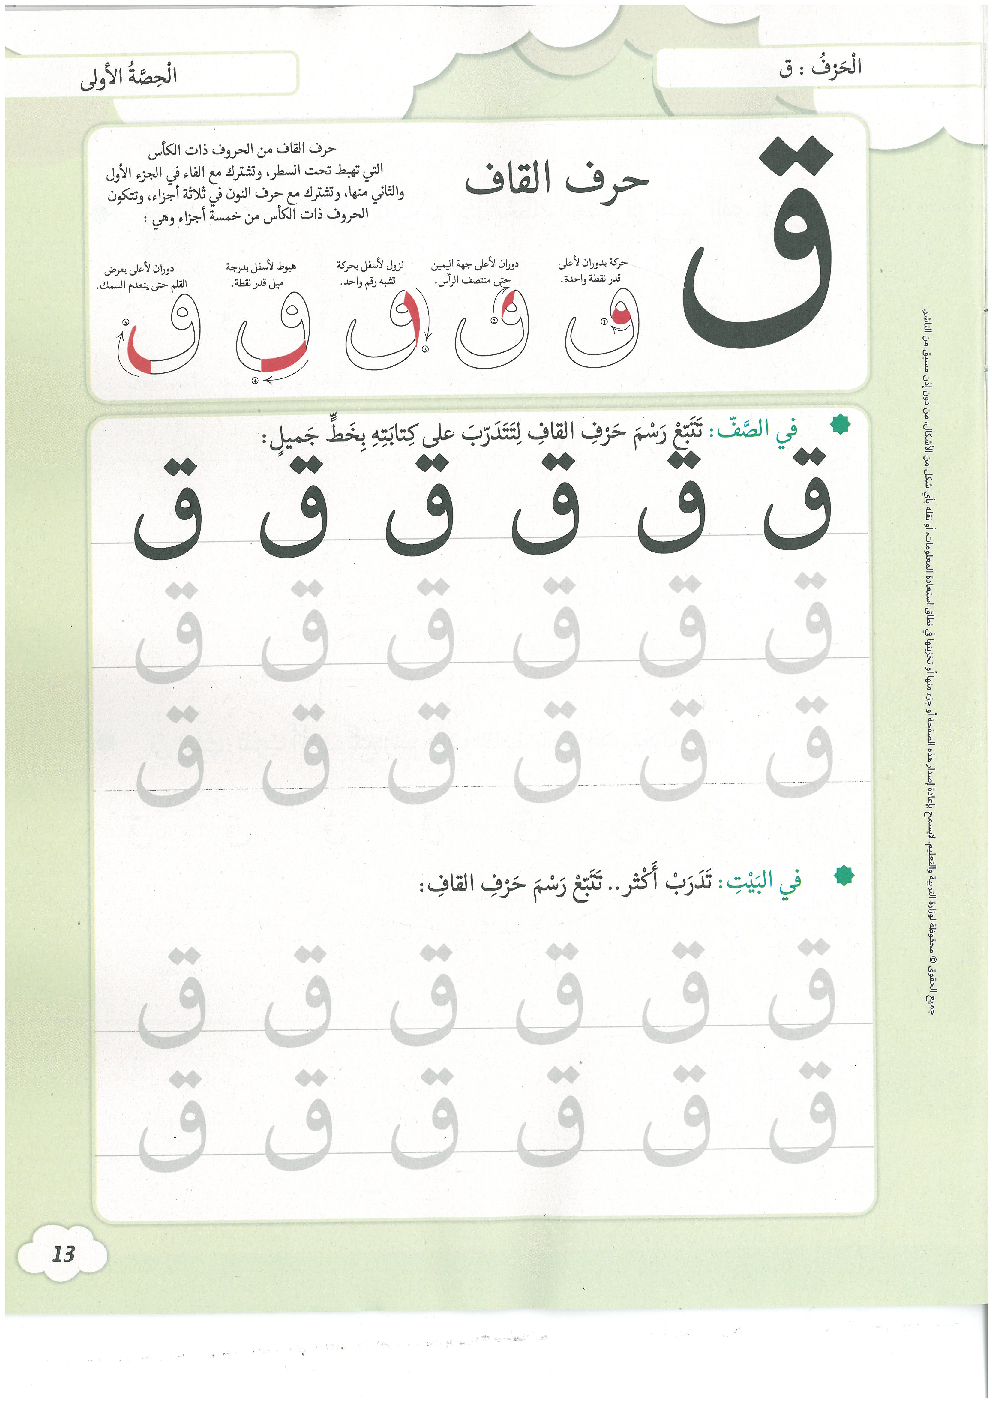 الْحَرْفُ : ق
الْحِصَّةُ الأولى
ق
حرف القاف
حرف القاف من الحروف ذات الكأس
التي تهبط تحت السطر، وتشترك مع الفاء في الجزء الأول
والثاني منها، وتشترك مع حرف النون في ثلاثة أجزاء، وتتكون
الحروف ذات الكأس من خمسة أجزاء وهي :
حركة بدوران لأعلى
قدر نقطة واحدة.
دوران لأعلى جهة اليمين
حتى منتصف الرأس.
نزول لأسفل بحركة
تشبه رقم واحد.
هبوط لأسفل بدرجة
ميل قدر نقطة.
دوران لأعلى بعرض
القلم حتى ينعدم السمك.
ق ق ق ق ق
في الصَّفّ: تَتَبّعْ رَسْمَ حَرْفِ القافِ لِتَتَدَرّبَ على كِتابَتِهِ بِخَطٍّ جَميلٍ:
ق ق ق ق ق ق
ق ق ق ق ق ق
ق ق ق ق ق ق
في البَيْتِ: تَدَرَبْ أَكْثر.. تَتَبّعْ رَسْمَ حَرْفِ القافِ:
ق ق ق ق ق ق
ق ق ق ق ق ق
جميع الحقوق © محفوظة لوزارة التربية والتعليم. لايسمح بإعادة إصدار هذه الصفحة أو جزء منها أو تخزينها في نطاق استعادة المعلومات، أو نقله بأي شكل من الأشكال، من دون إذن مسبق من الناشر.
13